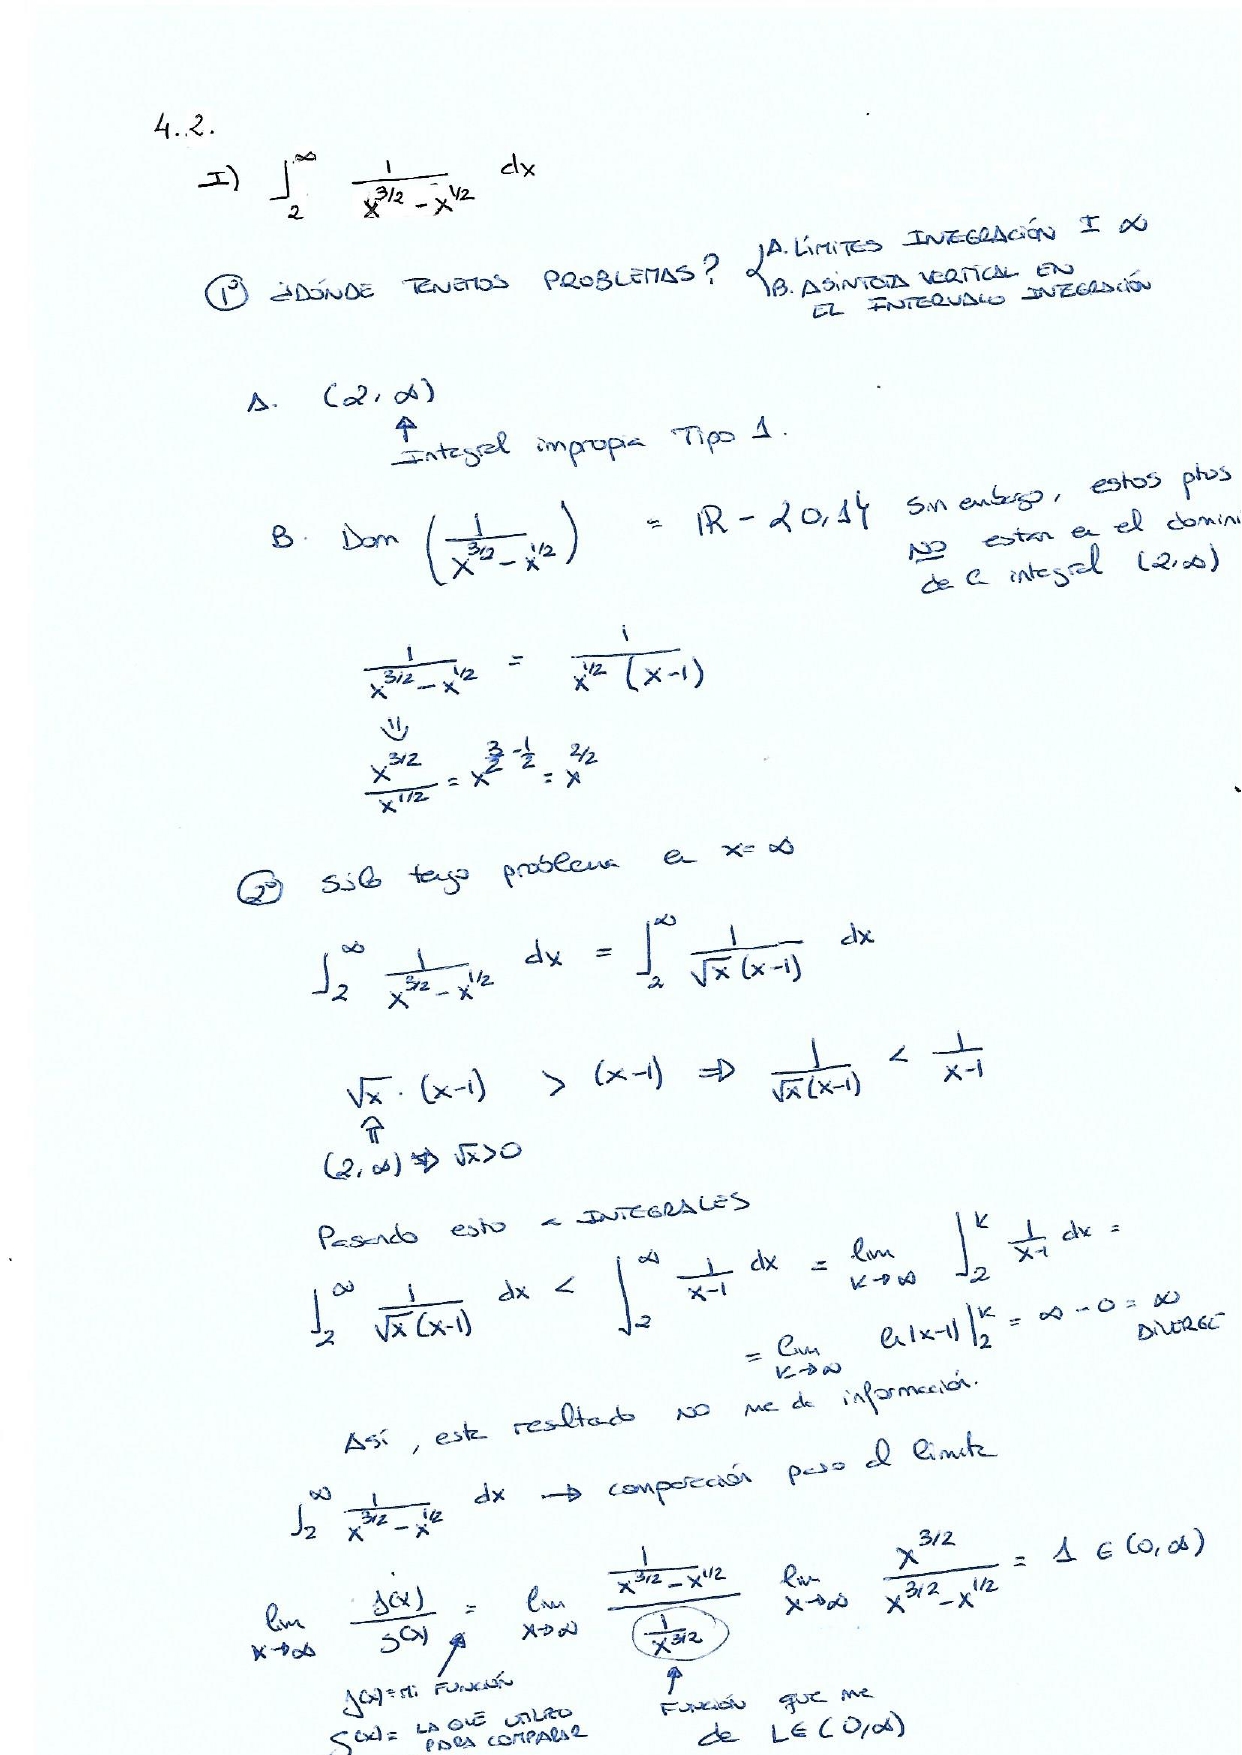 4.2.
I) ∫_2^∞ 1/(x^{3/2} - x^{1/2}) dx
1º ¿DÓNDE TENEMOS PROBLEMAS? { A. LÍMITES INTEGRACIÓN I ∞
B. ASÍNTOTA VERTICAL EN
EL INTERVALO INTEGRACIÓN
A. (2, ∞)
↑
Integral impropia Tipo 1.
B. Dom (1/(x^{3/2} - x^{1/2})) = ℝ - {0,1} Sin embargo, estos ptos
NO estan en el domini
de la integral (2,∞)
1/(x^{3/2} - x^{1/2}) = 1/(x^{1/2} (x-1))
⇓
x^{3/2}/x^{1/2} = x^{3/2 - 1/2} = x^{2/2}
2º Sólo tengo problema en x=∞
∫_2^∞ 1/(x^{3/2} - x^{1/2}) dx = ∫_2^∞ 1/(√x (x-1)) dx
√x · (x-1) > (x-1) ⇒ 1/(√x (x-1)) < 1/(x-1)
⇑
(2, ∞) ⇒ √x>0
Pasando esto a INTEGRALES
∫_2^∞ 1/(√x (x-1)) dx < ∫_2^∞ 1/(x-1) dx = lim_{k→∞} ∫_2^k 1/(x-1) dx =
= lim_{k→∞} ln|x-1| |_2^k = ∞ - 0 = ∞
DIVERGE
Así, este resultado NO me da información.
∫_2^∞ 1/(x^{3/2} - x^{1/2}) dx → comparación paso al límite
lim_{x→∞} f(x)/g(x) = lim_{x→∞} (1/(x^{3/2} - x^{1/2}))/(1/x^{3/2}) lim_{x→∞} x^{3/2}/(x^{3/2} - x^{1/2}) = 1 ∈ (0,∞)
f(x)= Mi FUNCIÓN
g(x)= LA QUE UTILIZO
PARA COMPARAR
FUNCIÓN que me
da L∈(0,∞)